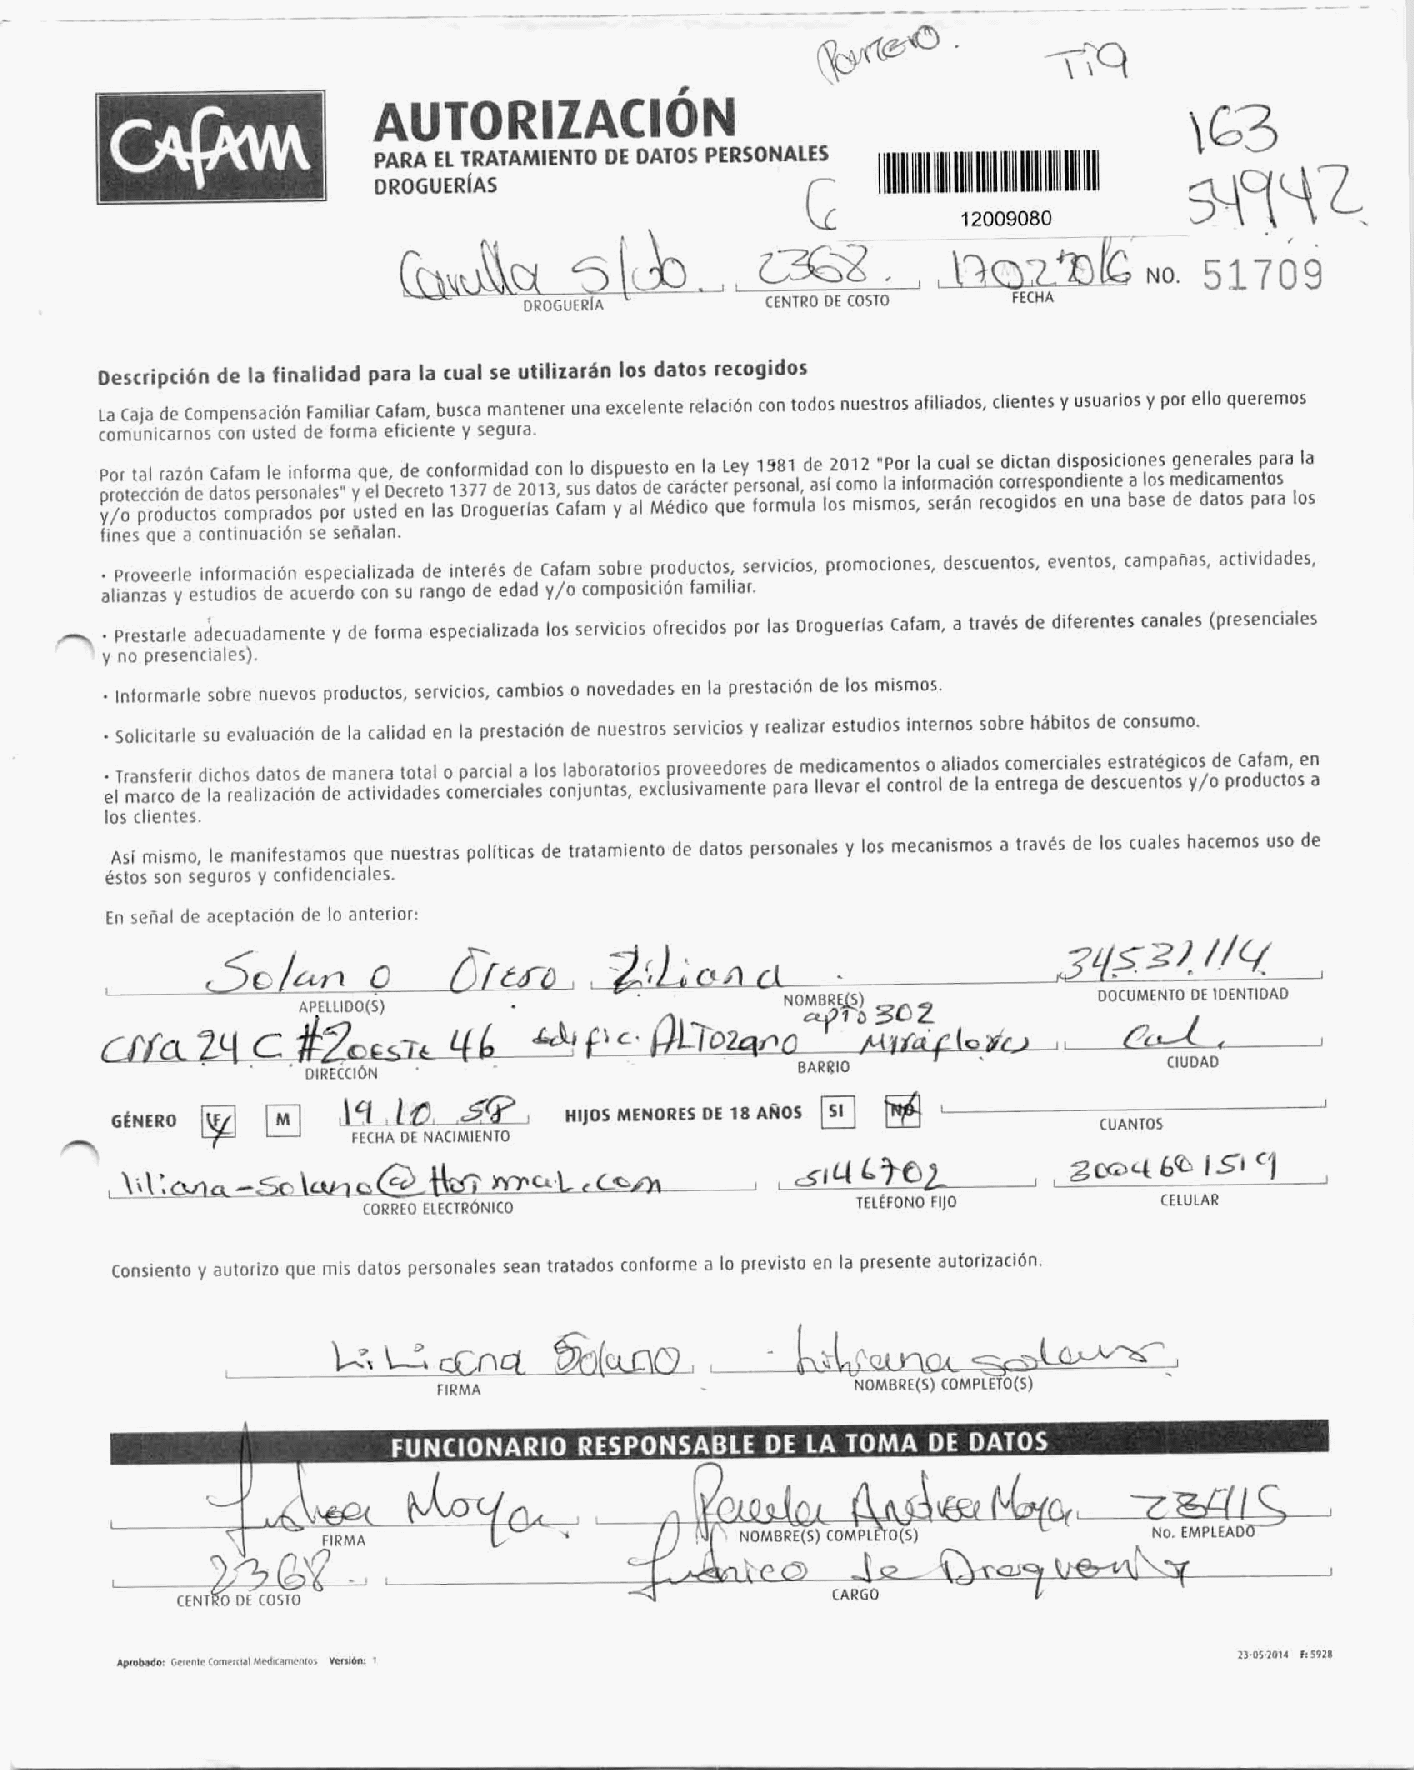 Tiq
163
CAFAM
AUTORIZACIÓN
PARA EL TRATAMIENTO DE DATOS PERSONALES
DROGUERÍAS
12009080
54942
2368. 17022016 NO. 51709
DROGUERÍA CENTRO DE COSTO FECHA
Descripción de la finalidad para la cual se utilizarán los datos recogidos
La Caja de Compensación Familiar Cafam, busca mantener una excelente relación con todos nuestros afiliados, clientes y usuarios y por ello queremos
comunicarnos con usted de forma eficiente y segura.
Por tal razón Cafam le informa que, de conformidad con lo dispuesto en la Ley 1981 de 2012 "Por la cual se dictan disposiciones generales para la
protección de datos personales" y el Decreto 1377 de 2013, sus datos de carácter personal, así como la información correspondiente a los medicamentos
y/o productos comprados por usted en las Droguerías Cafam y al Médico que formula los mismos, serán recogidos en una base de datos para los
fines que a continuación se señalan.
· Proveerle información especializada de interés de Cafam sobre productos, servicios, promociones, descuentos, eventos, campañas, actividades,
alianzas y estudios de acuerdo con su rango de edad y/o composición familiar.
· Prestarle adecuadamente y de forma especializada los servicios ofrecidos por las Droguerías Cafam, a través de diferentes canales (presenciales
y no presenciales).
· Informarle sobre nuevos productos, servicios, cambios o novedades en la prestación de los mismos.
· Solicitarle su evaluación de la calidad en la prestación de nuestros servicios y realizar estudios internos sobre hábitos de consumo.
· Transferir dichos datos de manera total o parcial a los laboratorios proveedores de medicamentos o aliados comerciales estratégicos de Cafam, en
el marco de la realización de actividades comerciales conjuntas, exclusivamente para llevar el control de la entrega de descuentos y/o productos a
los clientes.
Así mismo, le manifestamos que nuestras políticas de tratamiento de datos personales y los mecanismos a través de los cuales hacemos uso de
éstos son seguros y confidenciales.
En señal de aceptación de lo anterior:
Solano Liliana 34531.114
APELLIDO(S) NOMBRE(S) DOCUMENTO DE IDENTIDAD
apto 302
Crra 24 C #2oeste 46 Edific. ALTozano Miraflores Cal.
DIRECCIÓN BARRIO CIUDAD
GÉNERO F M 19.10.58 HIJOS MENORES DE 18 AÑOS SI NO
FECHA DE NACIMIENTO CUANTOS
liliana-solano@Hotmail.com 5146702 3004601519
CORREO ELECTRÓNICO TELÉFONO FIJO CELULAR
Consiento y autorizo que mis datos personales sean tratados conforme a lo previsto en la presente autorización.
LiLiana Solano Liliana solano
FIRMA NOMBRE(S) COMPLETO(S)
FUNCIONARIO RESPONSABLE DE LA TOMA DE DATOS
Andrea Moya. Paula Andrea Moya 23415
FIRMA NOMBRE(S) COMPLETO(S) No. EMPLEADO
2368. de
CENTRO DE COSTO CARGO
Aprobado: Gerente Comercial Medicamentos Versión: 1 23-05-2014 F: 5928